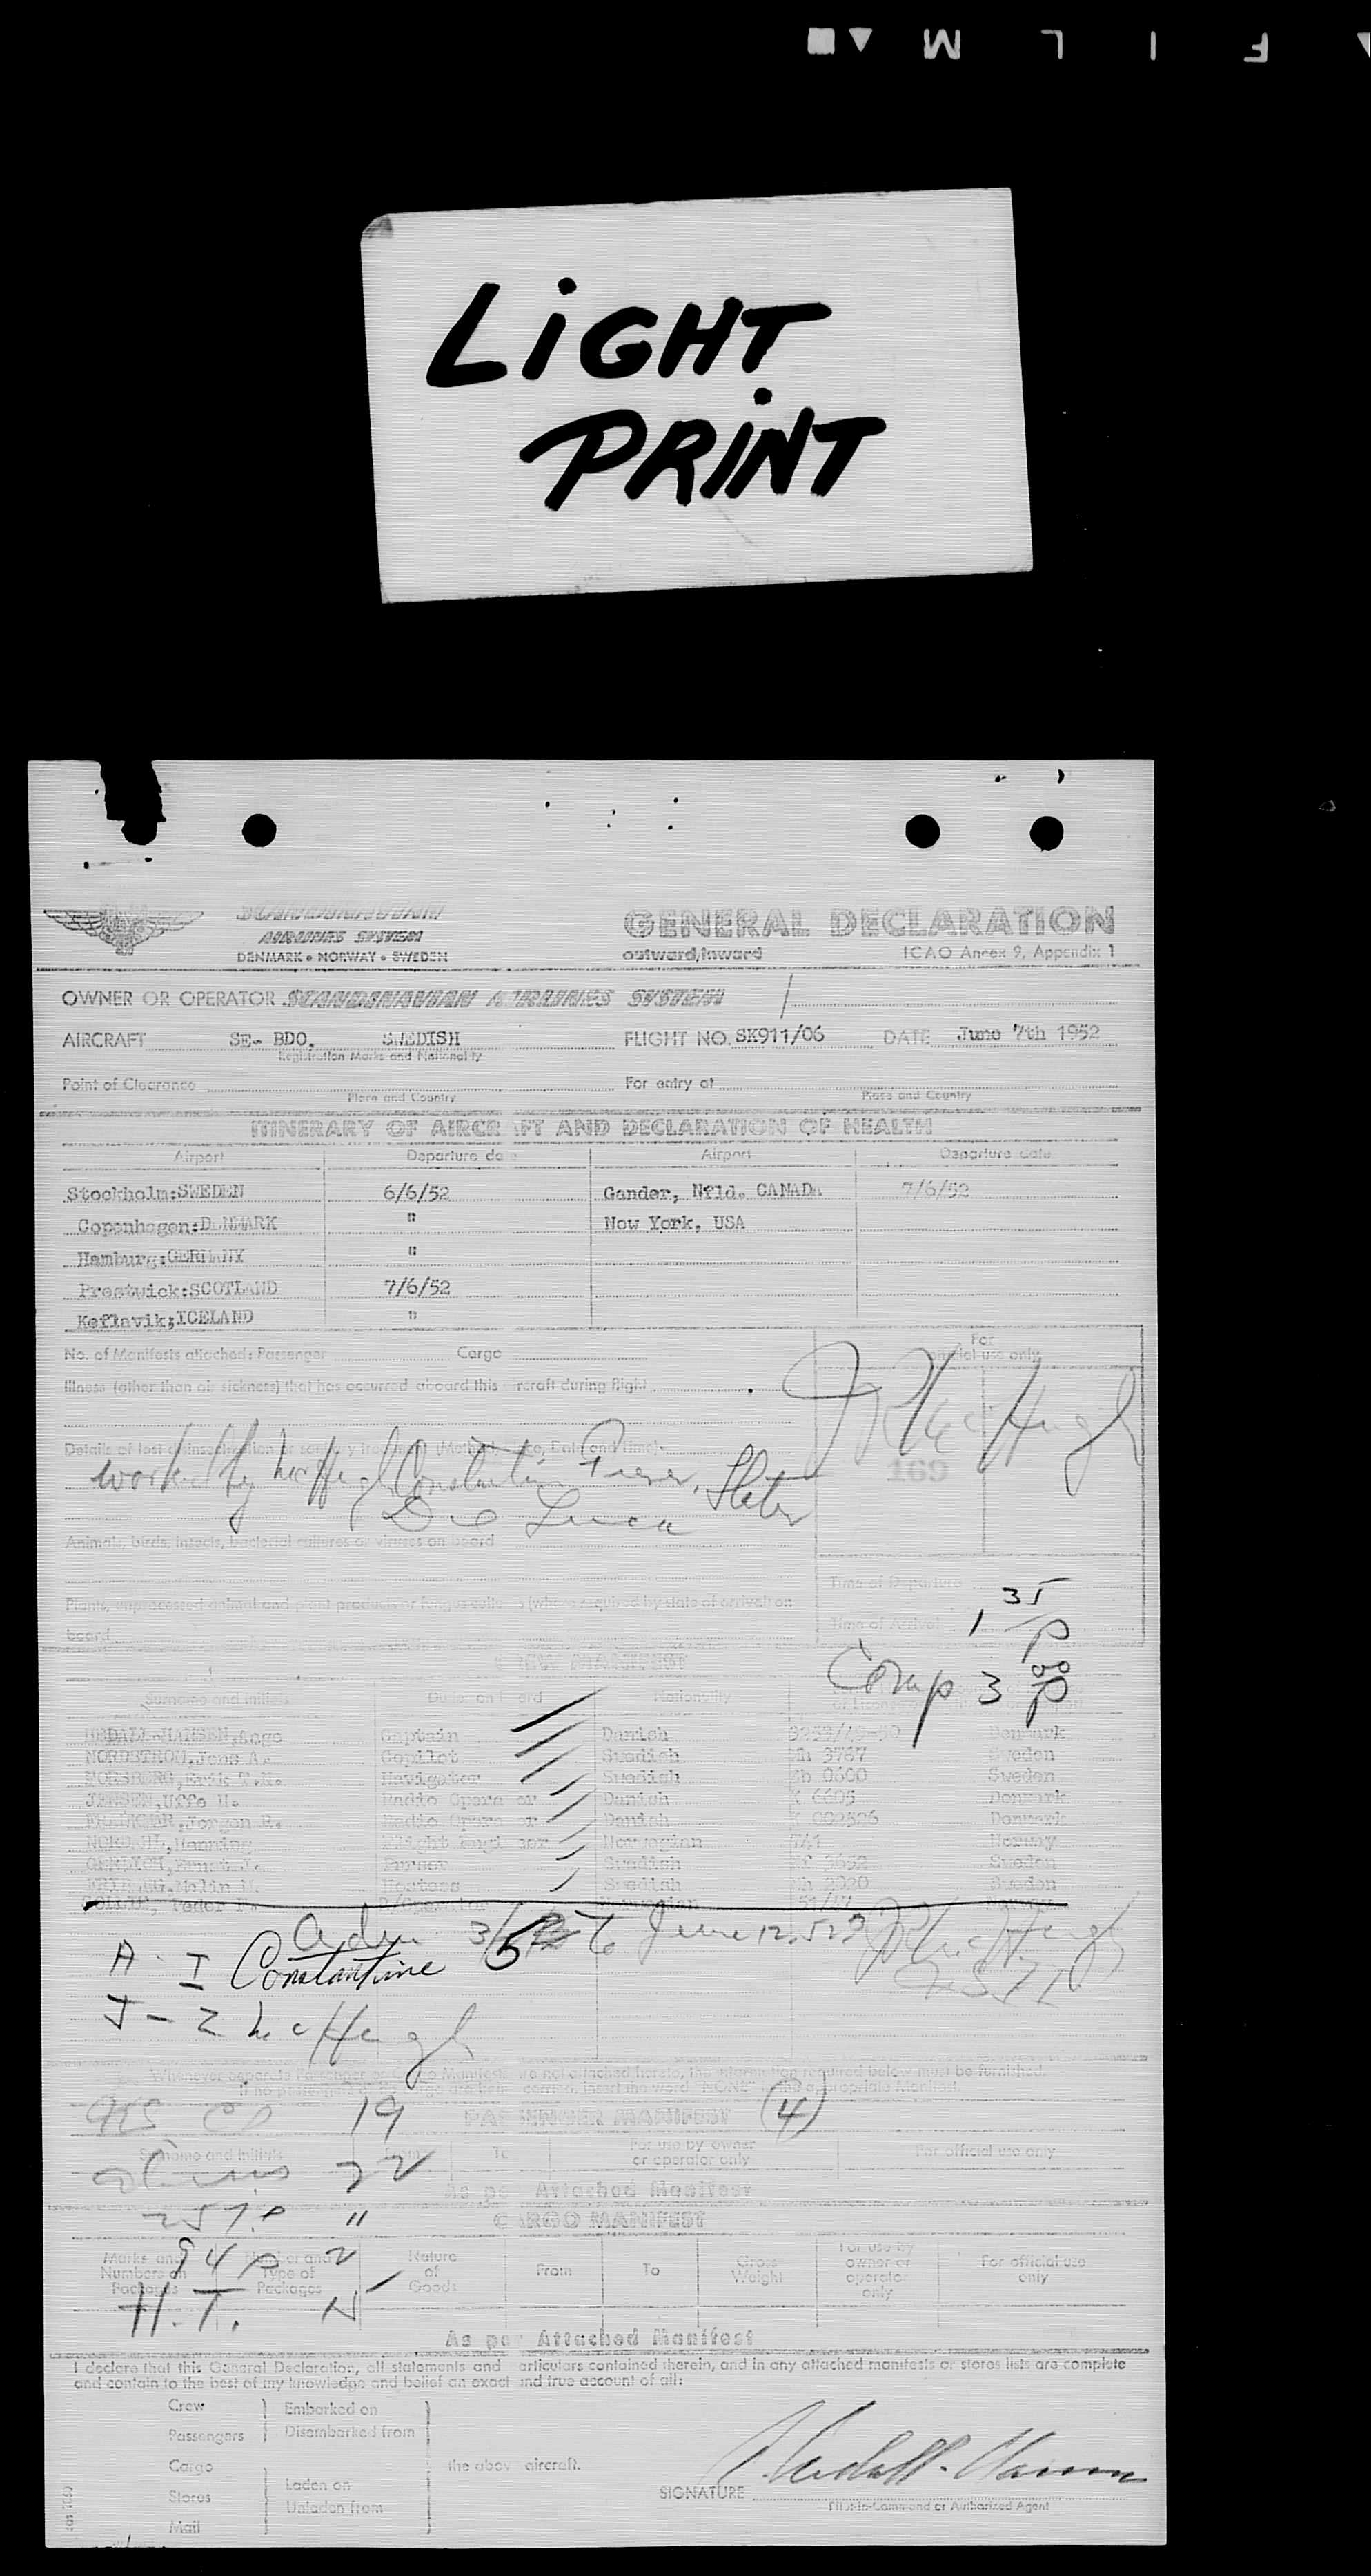 FILM
LiGHT
PRiNT
SCANDINAVIAN
AIRLINES SYSTEM
DENMARK • NORWAY • SWEDEN
GENERAL DECLARATION
outward/inward
ICAO Annex 9, Appendix 1
OWNER OR OPERATOR SCANDINAVIAN AIRLINES SYSTEM
AIRCRAFT SE- BDO, SWEDISH FLIGHT NO. SK911/06 DATE June 7th 1952
Registration Marks and Nationality
Point of Clearance For entry at
Place and Country Place and Country
ITINERARY OF AIRCRAFT AND DECLARATION OF HEALTH
Airport Departure da Airport Departure date
Stockholm:SWEDEN 6/6/52 Gander, Nfld. CANADA 7/6/52
Copenhagen:DENMARK " New York, USA
Hamburg:GERMANY "
Prestwick:SCOTLAND 7/6/52
Keflavik;ICELAND "
No. of Manifests attached: Passenger Cargo
For
official use only
Illness (other than air sickness) that has occurred aboard this ircraft during flight
Details of last disinsectization or sanitary treatment (Method, Place, Date and Time)
169
worked by Constantine Slater
De Luca
Animals, birds, insects, bacterial cultures or viruses on board
Time of Departure
Plants, unprocessed animal and plant products or fungus cultures (where required by state of arrival) on
board
Time of Arrival 1 35 P
CREW MANIFEST
Comp 3 00 P
Surname and initials Duties on board Nationality
HEDALL-HANSEN, Aage Captain Danish 3253/49-50 Denmark
NORDSTROM, Jens A. Copilot Swedish 3767 Sweden
FORSBERG, Erik T.N. Navigator Swedish 0600 Sweden
JENSEN, Uffe H. Radio Opera or Danish K 6605 Denmark
Jorgen E. Radio Opera or Danish K 002526 Denmark
NORDAHL, Henning Flight Engi eer Norwegian 741 Norway
GERLICH, Ernst J. Purser Swedish 3652 Sweden
Malin M. Hostess Swedish 2020 Sweden
Peder Norwegian 51/47 Norway
June 12, 52
A - I Constantine
J - Z
Whenever separate Passenger or Cargo Manifests are not attached hereto, the information required below must be furnished.
If no passengers or cargo are being carried, insert the word "NONE" in the appropriate Manifest.
19
PASSENGER MANIFEST (4)
Surname and initials From To For use by owner or operator only For official use only
aliens 22
As per Attached Manifest
257 P "
CARGO MANIFEST
94 P 2
Marks and Numbers on Packages Number and Type of Packages Nature of Goods From To Gross Weight For use by owner or operator only For official use only
H.T. N
As per Attached Manifest
I declare that this General Declaration, all statements and articulars contained therein, and in any attached manifests or stores lists are complete
and contain to the best of my knowledge and belief an exact and true account of all:
Crew Embarked on
Passengers Disembarked from
Cargo the above aircraft.
Stores Laden on
Unladen from
Mail
SIGNATURE Hedall-Hansen
Pilot-in-Command or Authorized Agent